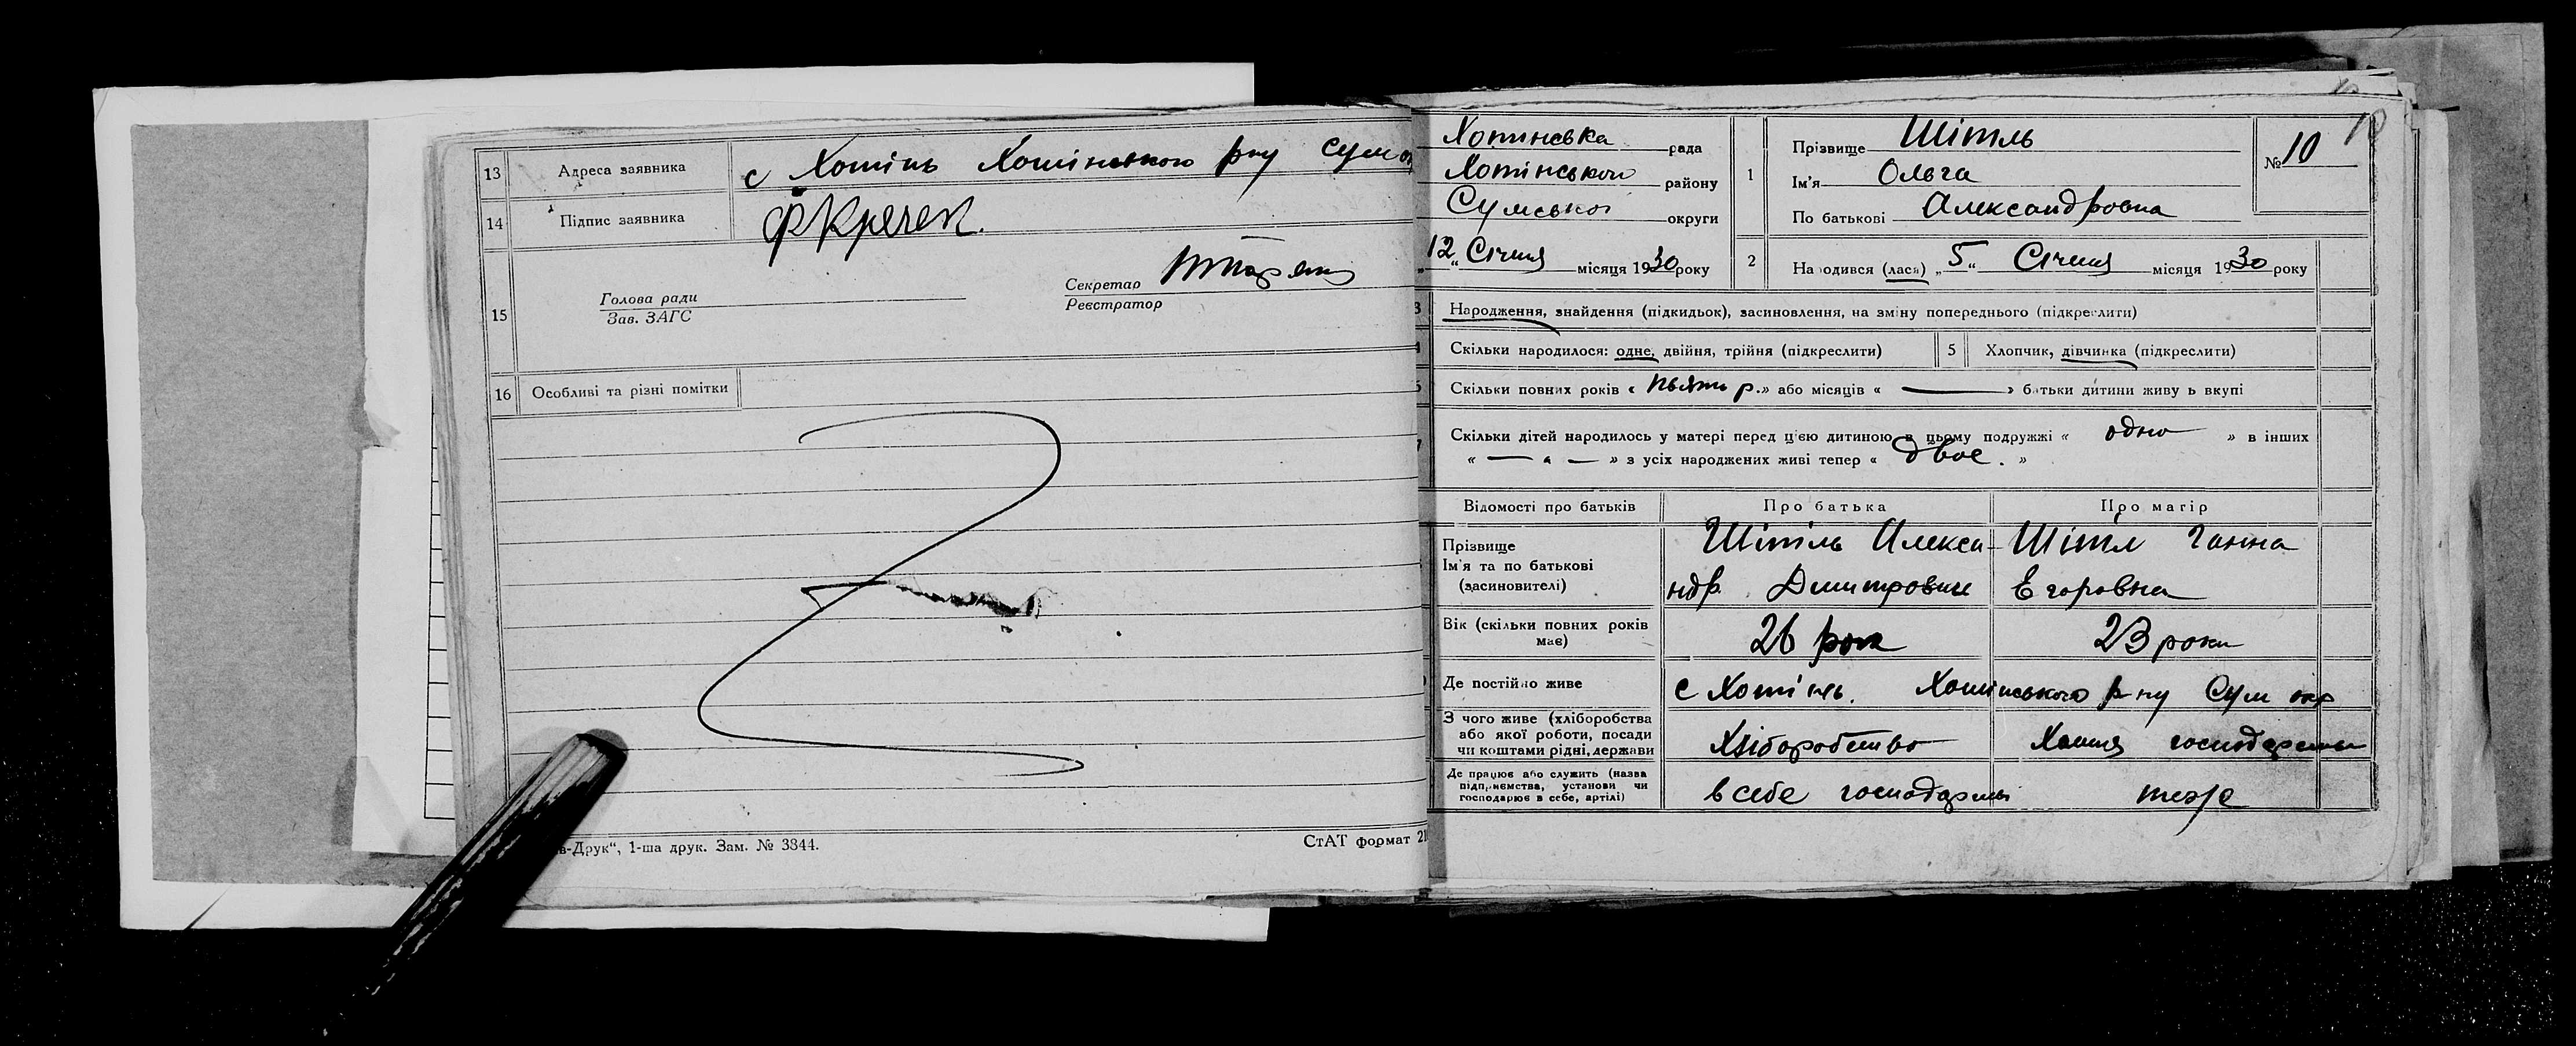 13 Адреса заявника с Хотінь Хотінського р-ну Сумо
14 Підпис заявника ФКречек.
15 Голова ради
Зав. ЗАГС
Секретар
Реєстратор
16 Особливі та різні помітки
в-Друк“, 1-ша друк. Зам. № 3844.
СтАТ формат 21
Хотинська рада
Хотінського району
Сумської округи
„12“ Січня місяця 1930 року
1 Прізвище Шітль
Ім'я Ольга
По батькові Александровна
№ 10
10
2 На одився (лася) „5“ Січня місяця 1930 року
3 Народження, знайдення (підкидьок), засиновлення, на зміну попереднього (підкреслити)
Скільки народилося: одне, двійня, трійня (підкреслити)
5 Хлопчик, дівчинка (підкреслити)
Скільки повних років « пьять р. » або місяців « — » батьки дитини живу ь вкупі
Скільки дітей народилось у матері перед цією дитиною в цьому подружжі « одно » в інших
« — « — » з усіх народжених живі тепер « двоє. »
Відомості про батьків Про батька Про матір
Прізвище
Ім'я та по батькові
(засиновителі)
Шітль Алекса-
ндр. Дмитрович
Шітл Ганна
Егоровна
Вік (скільки повних років
має)
26 рок 23 роки
Де постійно живе с Хотінь. Хотінського р-ну Сум окр
З чого живе (хліборобства
або якої роботи, посади
чи коштами рідні, держави
Хліборобство Хатня господарств
Де працює або служить (назва
підприємства, установи чи
господарює в себе, артілі)
в себе господарстві теже